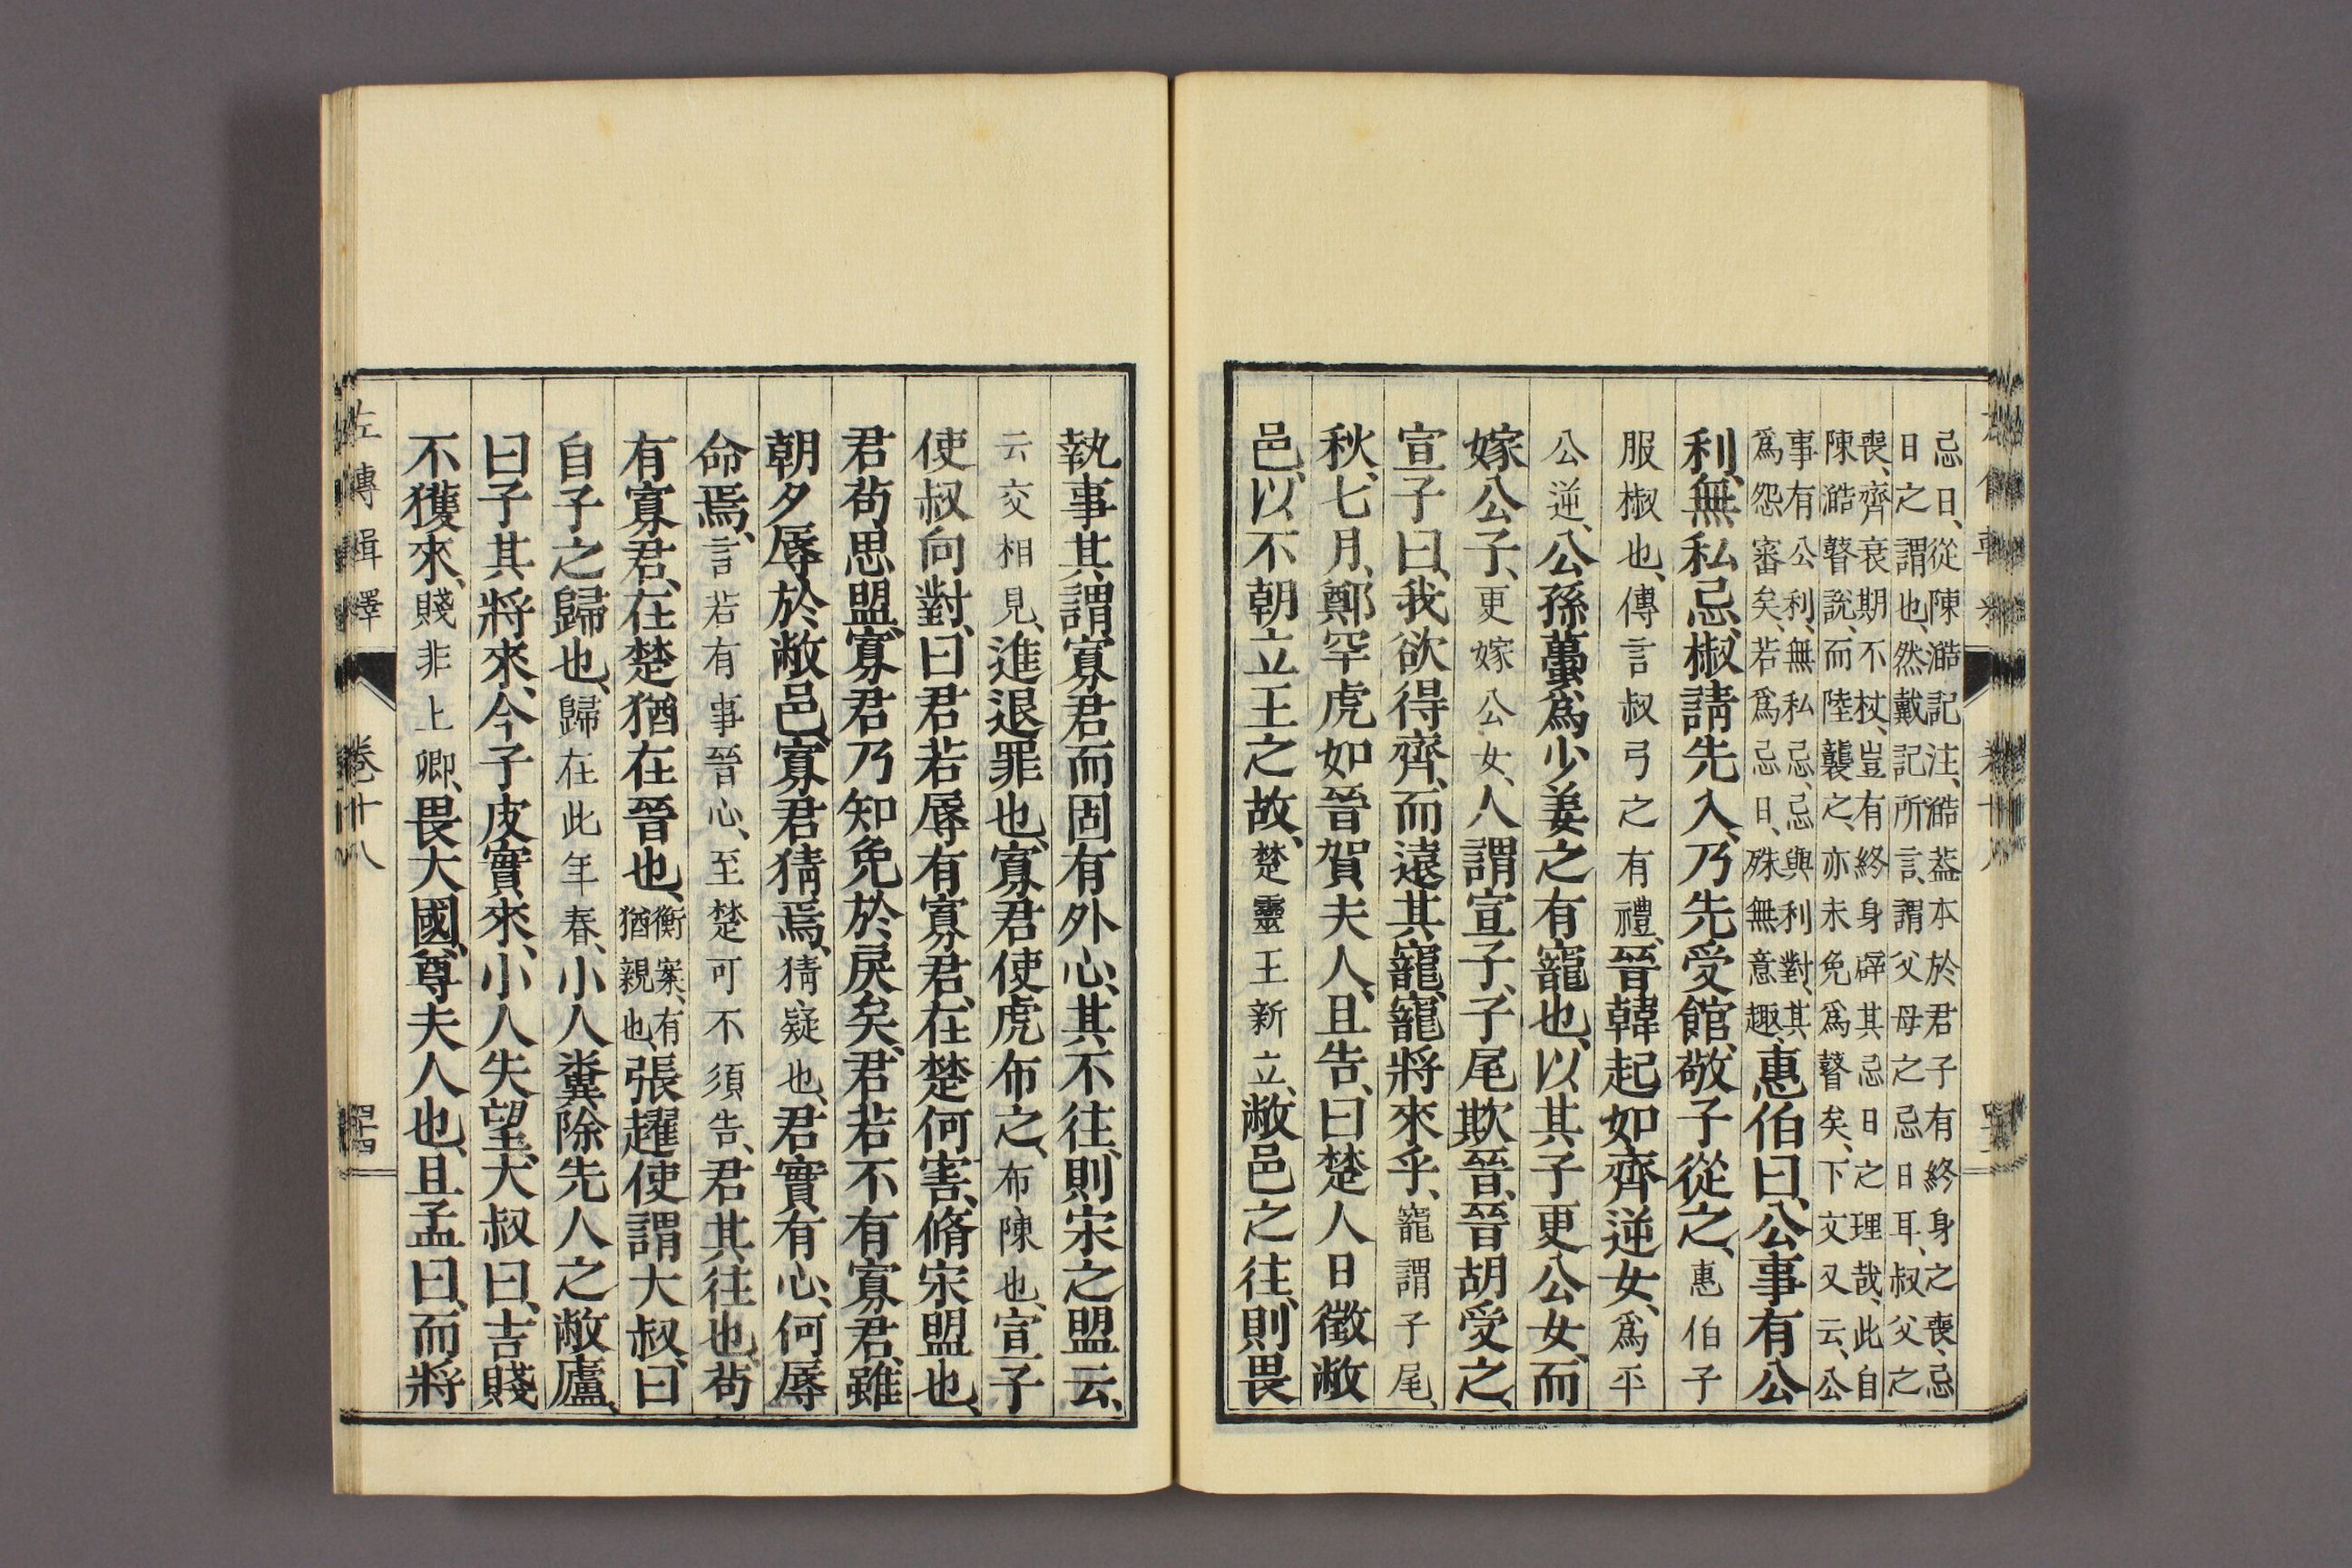 忌日、從陳澔記注、澔葢本於君子有終身之喪、忌
日之謂也、然戴記所言、謂父母之忌日耳、叔父之
喪、齊衰期不杖、豈有終身辟其忌日之理哉、此自
陳澔瞽說、而陸襲之、亦未免爲瞽矣、下文又云、公
事有公利、無私忌、忌與利對、其
爲怨審矣、若爲忌日、殊無意趣、惠伯曰、公事有公
利、無私忌、椒請先入、乃先受館、敬子從之、惠伯子
服椒也、傳言叔弓之有禮、晉韓起如齊逆女、爲平
公逆、公孫蠆爲少姜之有寵也、以其子更公女、而
嫁公子、更嫁公女、人謂宣子、子尾欺晉、晉胡受之、
宣子曰、我欲得齊、而遠其寵、寵將來乎、寵謂子尾、
秋、七月、鄭罕虎如晉賀夫人、且告、曰楚人日徵敝
邑、以不朝立王之故、楚靈王新立、敝邑之往、則畏
執事其謂寡君而固有外心、其不往、則宋之盟云、
云交相見、進退罪也、寡君使虎布之、布陳也、宣子
使叔向對、曰君若辱有寡君、在楚何害、脩宋盟也、
君茍思盟、寡君乃知免於戾矣、君若不有寡君、雖
朝夕辱於敝邑、寡君猜焉、猜疑也、君實有心、何辱
命焉、言若有事晉心、至楚可不須告、君其往也、茍
有寡君、在楚猶在晉也、衡案、有
猶親也、張趯使謂大叔、曰
自子之歸也、歸在此年春、小人糞除先人之敝廬、
曰子其將來、今子皮實來、小人失望、大叔曰、吉賤
不獲來、賤非上卿、畏大國、尊夫人也、且孟曰、而將
左傳輯釋 卷十八